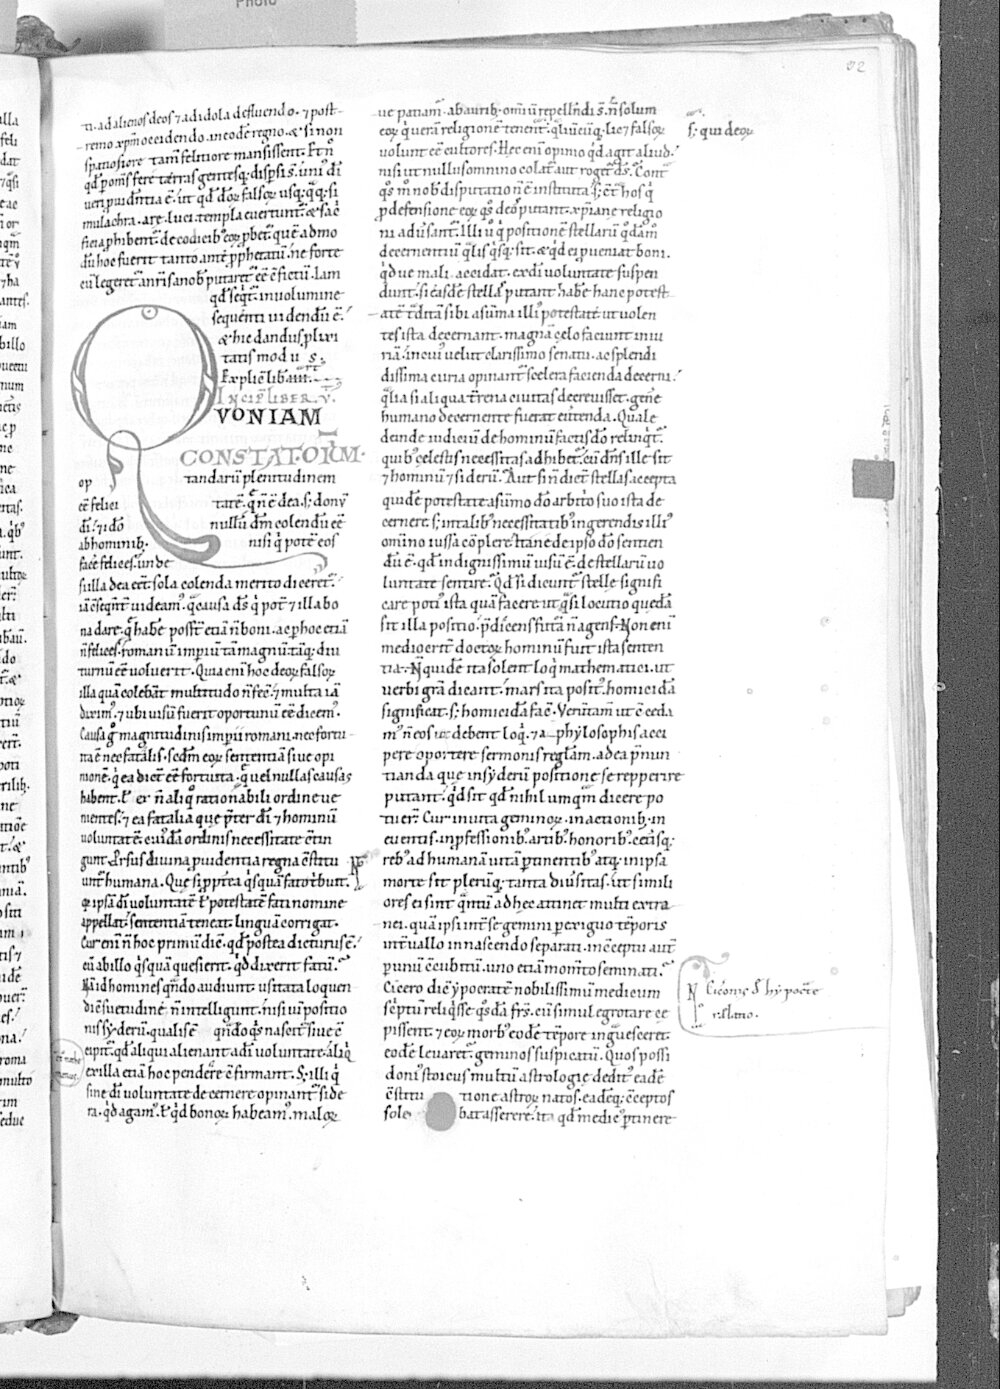 ti. ad alienos deos ⁊ ad idola defluendo. ⁊ post-
remo xp̄m occidendo. in eodē regno. & si non
spatiosiore tam̄ felitiore mansissent. Et n̄c
qd̄ p om̄s fere terras gentesq; disp̄si s̄. uni᷒ dī
ueri p̱uidn̄tia ē. ut qd̄ dō̱ꝝ falsoꝝ usq; q̄q; si
mulachra. are. luci. templa euertunt᷒. & sac̄
ficia phibent᷒. de codicib᷒ eoꝝ p̄bet᷒. quē admo
dū hoc fuerit tanto ante p̱pheratū. ne forte
cū legeret᷒ in nr̄is a nob̄ putaret᷒ ēē c̄fictū. Iam
qd̄ seq̄t᷒. in uolumine
sequenti uidendū ē.
& hic dandus plixi
tatis modus.
Explic̄ lib̄ IIII.
INCIPIT LIBER V.
QVONIAM
CONSTAT OM̄IVM.
op tandarū plenitudinem
ēē felici tatē. q̄ n̄ ē dea. s; donū
dī. ⁊ idō nullū dm̄ colendū ēē
ab hominib. nisi q̄ potē eos
facē felices. unde
si illa dea eēt. sola colenda merito diceret᷒.
iā c̄seqn̄t᷒ uideam᷒. q̄ causa ds̄ q̄ pot̄ ⁊ illa bo
na dare. q̄ habē poss̄t etiā n̄ boni. ac p hoc etiā
n̄ felices. romanū imperiū tā magnū tāq; diu
turnū ēē uoluerit. Quia enī hoc deoꝝ falsoꝝ
illa quā colebāt multitudo n̄ fec̄. ⁊ multa iā
dixim᷒. ⁊ ubi uisū fuerit oportunū ēē dicem᷒.
Causa g̊ magnitudinis imperii romani. nec fortu-
ita ē nec fatalis. scd̄m eoꝝ sententiā siue opi
monē. q̄ ea dic̄t ēē fortuita. q̄ uel nullas causas
habent. ł ex n̄ aliq̊ rationabili ordine ue
nientes. ⁊ ea fatalia que p̄ter dī ⁊ hominū
uoluntatē. cuiʼdā ordinis necessitate c̄tin
gunt. Prsus diuina p̱uidentia regna c̄stitu
unt᷒ humana. Que si pp̄terea q̄squā fato t̄buit.
q̱ ipsā dī uoluntatē ł potestatē fati nomine
appellat. sententiā teneat. linguā corrigat.
Cur enī n̄ hoc primū dic̄. qd̄ postea dicturus ē.
cū ab illo q̄squā quesierit. q̄d dixerit fatū.
Nā id homines qn̄do audiunt. usitata loquen
di c̄suetudine. n̄ intelligunt. nisi uī positio
nis syderū. qualis ē qn̄do q̄s nascit᷒ siue c̄
cipit᷒. qd̄ aliqui alienant a dī uoluntate. aliq̄
ex illa etiā hoc pendere c̄firmant. S; illi q̄
sine dī uoluntate decernere opinant᷒ side
ra. q̄d agam᷒. ł q̄d bonoꝝ habeam᷒. maloꝝ
ue patiam᷒. ab aurib. om̄iū repelln̄di s̄. n̄ solum
eoꝝ q̄ uerā religionē tenent. q̄ uī cūq; lic̄ ⁊ falsoꝝ
uolunt ēē cultores. Hec enī opinio q̄d agit aliud.
nisi ut nullus omnino colat᷒ aut roget᷒ ds̄. Cont᷒
q̄s m̊ nob̄ disputatio n̄ ē instituta. s; c̄t᷒ hos q̄
p̱ defensione eoꝝ q̄s deos putant. xp̄iane religio
ni adūsant᷒. Illi ū q̄ positionē stellarū q̊dām̊
decernentiū q̄lis q̄sq; sit. & q̄d ei p̱ueniat boni.
q̄d ue mali accidat. ex dī uoluntate suspen
dunt. si easdē stellas putant habē hanc potest
atē t̄ditā sibi a sūma illi᷒ potestate ut uolen
tes ista decernant. magnā celo faciunt iniu
riā. in cui᷒ uelut clarissimo senatu. ac splendi
dissima curia opinant᷒ scelera facienda decerni.
q̄lia si aliqua t̄rena ciuitas decreuisset. genē
humano decernente fuerat euertenda. Quale
deinde iudiciū de hominū factis dō relinq̄t᷒.
quib᷒ celestis necessitas adhibet᷒. cū dn̄s ille sit
⁊ hominū ⁊ siderū. Aut si n̄ dic̄t stellas. accepta
quidē potestate a sūmo dō arbit̄o suo ista de
cernere. s; in talib᷒ necessitatib᷒ ingerendis illi᷒
om̄ino iussa c̄plere. itane de ipso dō sentien
dū ē. qd̄ indignissimū uisū ē. de stellarū uo
luntate sentire. Qd̄ si dicunt᷒ stelle signifi
care poti᷒ ista quā facere. ut q̄si locutio quedā
sit illa positio. p̄dicens futā n̄ agens. Non enī
mediocrit᷒ doctoꝝ hominū fuit ista senten
tia. N̄ quidē ita solent loq̄ mathematici. ut
uerbi grā dicant. mars ita posit᷒. homicidā
significat. s; homicidā fac̄. Verūtam̄ ut c̄ceda
m᷒ n̄ eos ut debent loq̄. ⁊ a phylosophis acci
pere oportere sermonis reglam. ad ea p̄nun
tianda que in syderū positione se repperire
putant. q̄d sit qd̄ nihil umqm̄ dicere po
tuer̄. Cur in uita geminoꝝ. in actionib᷒. in
euentis. in p̱fessionib᷒. artib᷒. honorib᷒. cet̄isq;
reb᷒ ad humanā uitā p̱tinentib᷒. atq; in ipsa
morte sit plerūq; tanta diūsitas. ut simili
ores ei sint qn̄tū ad hec attinet multi extra
nei. quā ipsi int̄ se gemini p̱ exiguo tēporis
int̄uallo in nascendo separati. in c̄ceptu aut̄
p unū c̄cubitū. uno etiā mom̄to seminati.
Cicero dic̄ ypocratē nobilissimū medicum
sc̄ptū reliq̄sse. q̄sdā frs̄. cū simul egrotare ce
pissent. ⁊ eoꝝ morb᷒ eodē tēpore ing̊uesceret.
eodē leuaret᷒. geminos suspicatū. Quos possi
doni᷒ stoicus multū astrologie dedit᷒ eadē
c̄stitu tione astroꝝ natos. eadēq; c̄ceptos
sole bat asserere. ita qd̄ medic᷒ p̱tinere
s; qui deoꝝ
N̄ Ciceronis